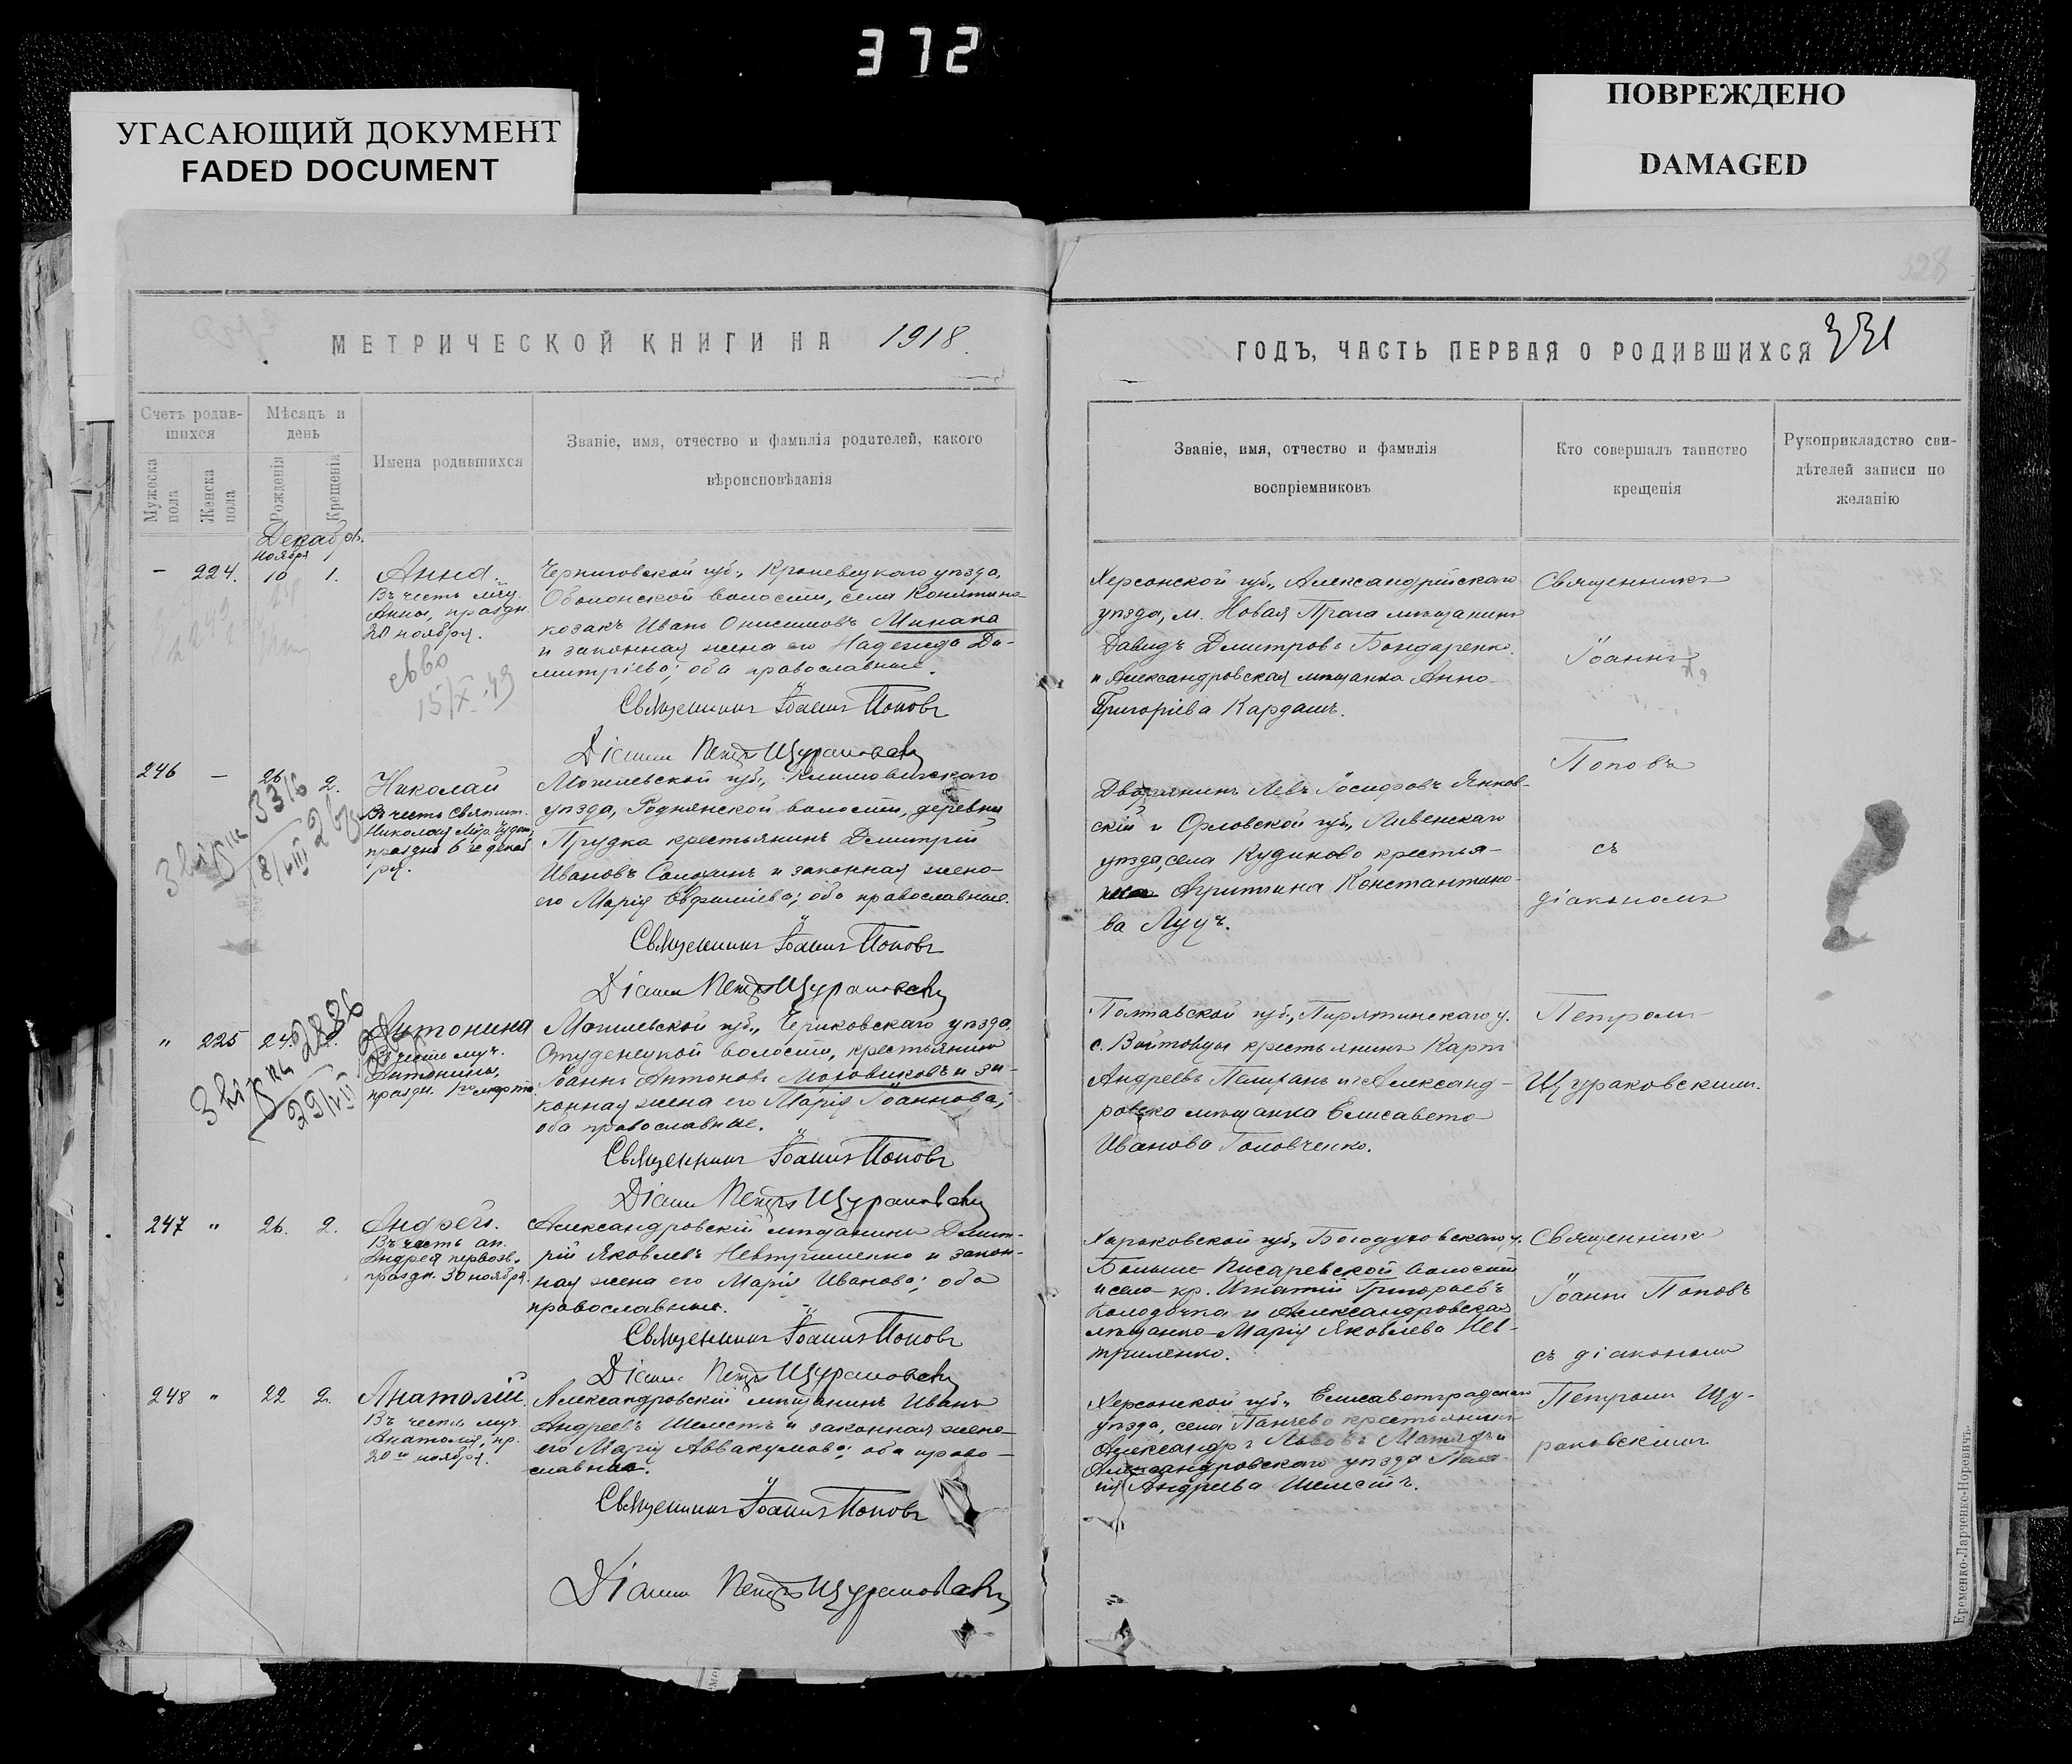 372
УГАСАЮЩИЙ ДОКУМЕНТ
FADED DOCUMENT
ПОВРЕЖДЕНО
DAMAGED
МЕТРИЧЕСКОЙ КНИГИ НА 1918
Счетъ родив-
шихся
Мѣсяцъ и
день
Мужеска
пола
Женска
пола
Рожденія
Крещенія
Имена родившихся
Званіе, имя, отчество и фамилія родителей, какого
вѣроисповѣданія
Декабрь.
ноября
– 224. 10 1.
Анна.
Въ честь мчц.
Анны, праздн.
20 ноября.
15/X 49
Черниговской губ., Кролевецкаго уѣзда,
Оболонской волости, села
козакъ Иванъ Онисимовъ Минака
и законная жена его Надежда Ди-
митріева; оба православные.
Священникъ Іоаннъ Поповъ
Діаконъ Петръ Щураковскій
246 – 26 2.
Николай
Въ честь Святит.
Николая Мѵр. Чудот.
праздн. 6 го декаб
ря.
3316
18/VIII
Могилевской губ., Климовичскаго
уѣзда, Роднянской волости, деревни
Прудка крестьянинъ Димитрій
Ивановъ и законная жена
его Марія Евфиміева; оба православные.
Священникъ Іоаннъ Поповъ
Діаконъ Петръ Щураковскій
" 225 24.
Антонина
Въ честь муч.
Антонины,
праздн. 1го марта
2886
29/VII
Могилевской губ., Чериковскаго уѣзда,
Студенецкой волости, крестьянинъ
Іоаннъ Антоновъ Моговиковъ и за-
конная жена его Марія Іоаннова;
оба православные.
Священникъ Іоаннъ Поповъ
Діаконъ Петръ Щураковскій
247 " 26. 2.
Андрей.
Въ честь ап.
Андрея первозв.
праздн. 30 ноября.
Александровскій мѣщанинъ Димит-
рій Яковлевъ и закон-
ная жена его Марія Иванова; оба
православные.
Священникъ Іоаннъ Поповъ
Діаконъ Петръ Щураковскій
248 " 22 2.
Анатолій.
Въ честь муч.
Анатолія, пр.
20 го ноября.
Александровскій мѣщанинъ Иванъ
Андреевъ Шелестъ и законная жена
его Марія Аввакумова; оба право-
славные.
Священникъ Іоаннъ Поповъ
Діаконъ Петръ Щураковскій
328
ГОДЪ, ЧАСТЬ ПЕРВАЯ О РОДИВШИХСЯ 331
Званіе, имя, отчество и фамилія
воспріемниковъ
Кто совершалъ таинство
крещенія
Рукоприкладство сви-
дѣтелей записи по
желанію
Херсонской губ., Александрійскаго
уѣзда, м. Новая Прага мѣщанинъ
Давидъ Димитровъ Бондаренко
и Александровская мѣщанка Анна
Григоріева Кардашъ.
Дворянинъ Левъ Іосифовъ Янков-
скій и Орловской губ., Ливенскаго
уѣзда, села Кудиново крестья-
нка Агриппина Константино-
ва Луцъ.
Полтавской губ., Пирятинскаго у.
с. Войтовцы крестьянинъ Карпъ
Андреевъ и Александ-
ровска мѣщанка Елисавета
Иванова Головченко.
Харьковской губ., Богодуховскаго у.
Больше-Писаревской волости
и села кр. Игнатій Григорьевъ
Колодочка и Александровская
мѣщанка Марія Яковлева Нев-
триленко.
Херсонской губ., Елисаветградскаго
уѣзда, села Панчево крестьянинъ
Александръ Львовъ и
Александровскаго уѣзда Пела-
гія Андреева Шелестъ.
Священникъ
Іоаннъ
Поповъ
съ
діакономъ
Петромъ
Щураковскимъ.
Священникъ
Іоаннъ Поповъ
съ діакономъ
Петромъ Щу-
раковскимъ
Еременко-Ларченко-Норевичъ.